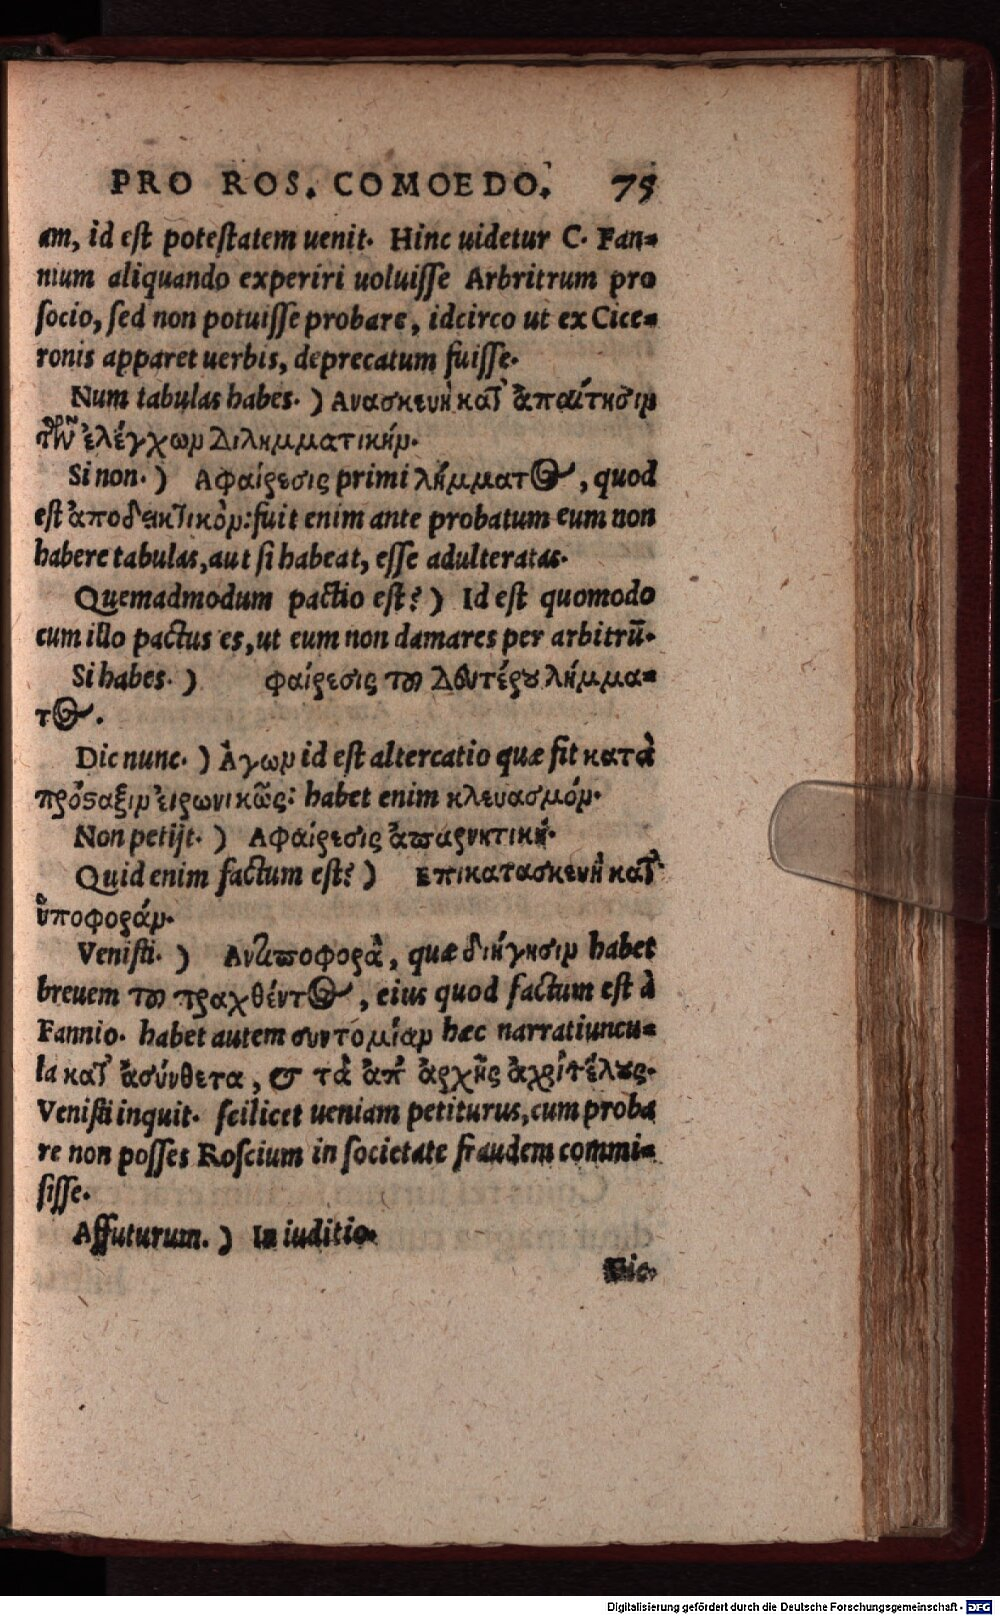 PRO ROS. COMOEDO. 75
am, id est potestatem uenit. Hinc uidetur C. Fan-
nium aliquando experiri uoluisse Arbritrum pro
socio, sed non potuisse probare, idcirco ut ex Cice-
ronis apparet uerbis, deprecatum fuisse.
Num tabulas habes. ) Ανασκευὴ κατ' ἀπαίτησιν
τῶν ἐλέγχων Διλημματικήν.
Si non. ) Αφαίρεσις primi λήμματος, quod
est ἀποδεικτικόν: fuit enim ante probatum eum non
habere tabulas, aut si habeat, esse adulteratas.
Quemadmodum pactio est? ) Id est quomodo
cum illo pactus es, ut eum non damares per arbitrū.
Si habes. ) φαίρεσις τοῦ Δευτέρου λήμμα-
τος.
Dic nunc. ) Ἀγων id est altercatio quæ fit κατὰ
πρόσταξιν εἰρωνικῶς: habet enim κλευασμόν.
Non petijt. ) Αφαίρεσις ἀπαρνκτική.
Quid enim factum est? ) Επικατασκευὴ κατ'
ὑποφοράν.
Venisti. ) Ανθυποφορὰ, quæ διήγησιν habet
breuem τοῦ πραχθέντος, eius quod factum est à
Fannio. habet autem συντομίαν hæc narratiuncu-
la κατ' ἀσύνθετα, & τὰ ἀπ' ἀρχῆς ἄχρι τέλους.
Venisti inquit. scilicet ueniam petiturus, cum proba
re non posses Roscium in societate fraudem commi-
sisse.
Affuturum. ) In iuditio.
Sic.
Digitalisierung gefördert durch die Deutsche Forschungsgemeinschaft - DFG